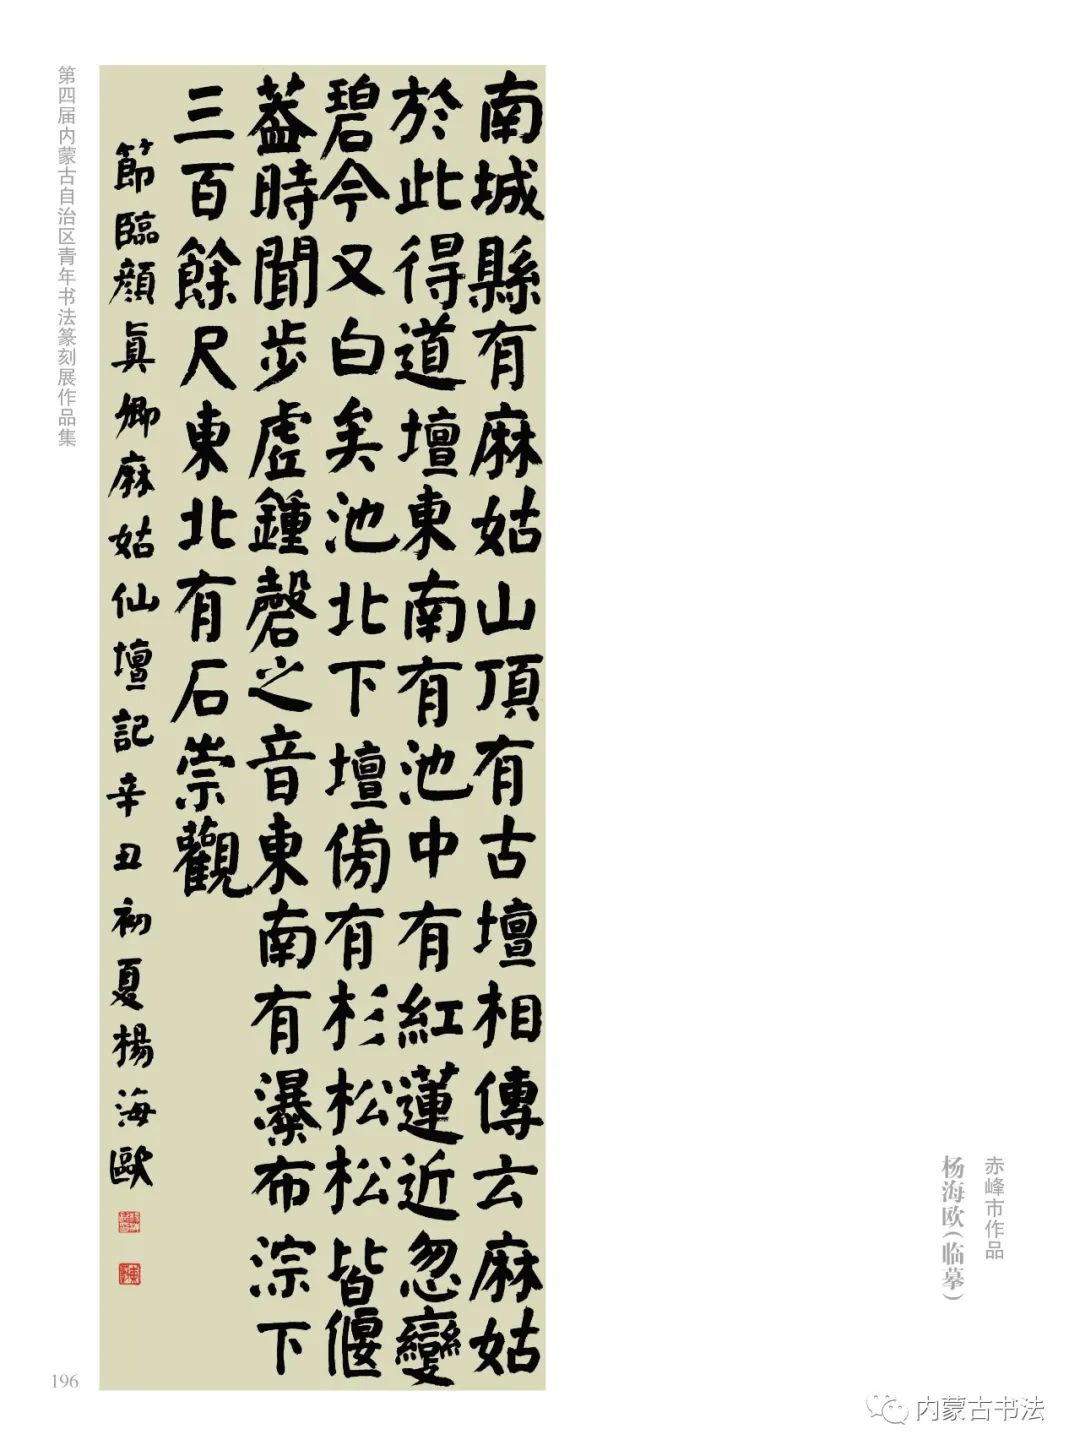 南城縣有麻姑山頂有古壇相傳云麻姑
於此得道壇東南有池中有紅蓮近忽變
碧今又白矣池北下壇傍有杉松松皆偃
蓋時聞步虛鍾磬之音東南有瀑布淙下
三百餘尺東北有石崇觀
節臨顏真卿麻姑仙壇記辛丑初夏楊海歐
第四届内蒙古自治区青年书法篆刻展作品集
赤峰市作品
杨海欧（临摹）
196
内蒙古书法